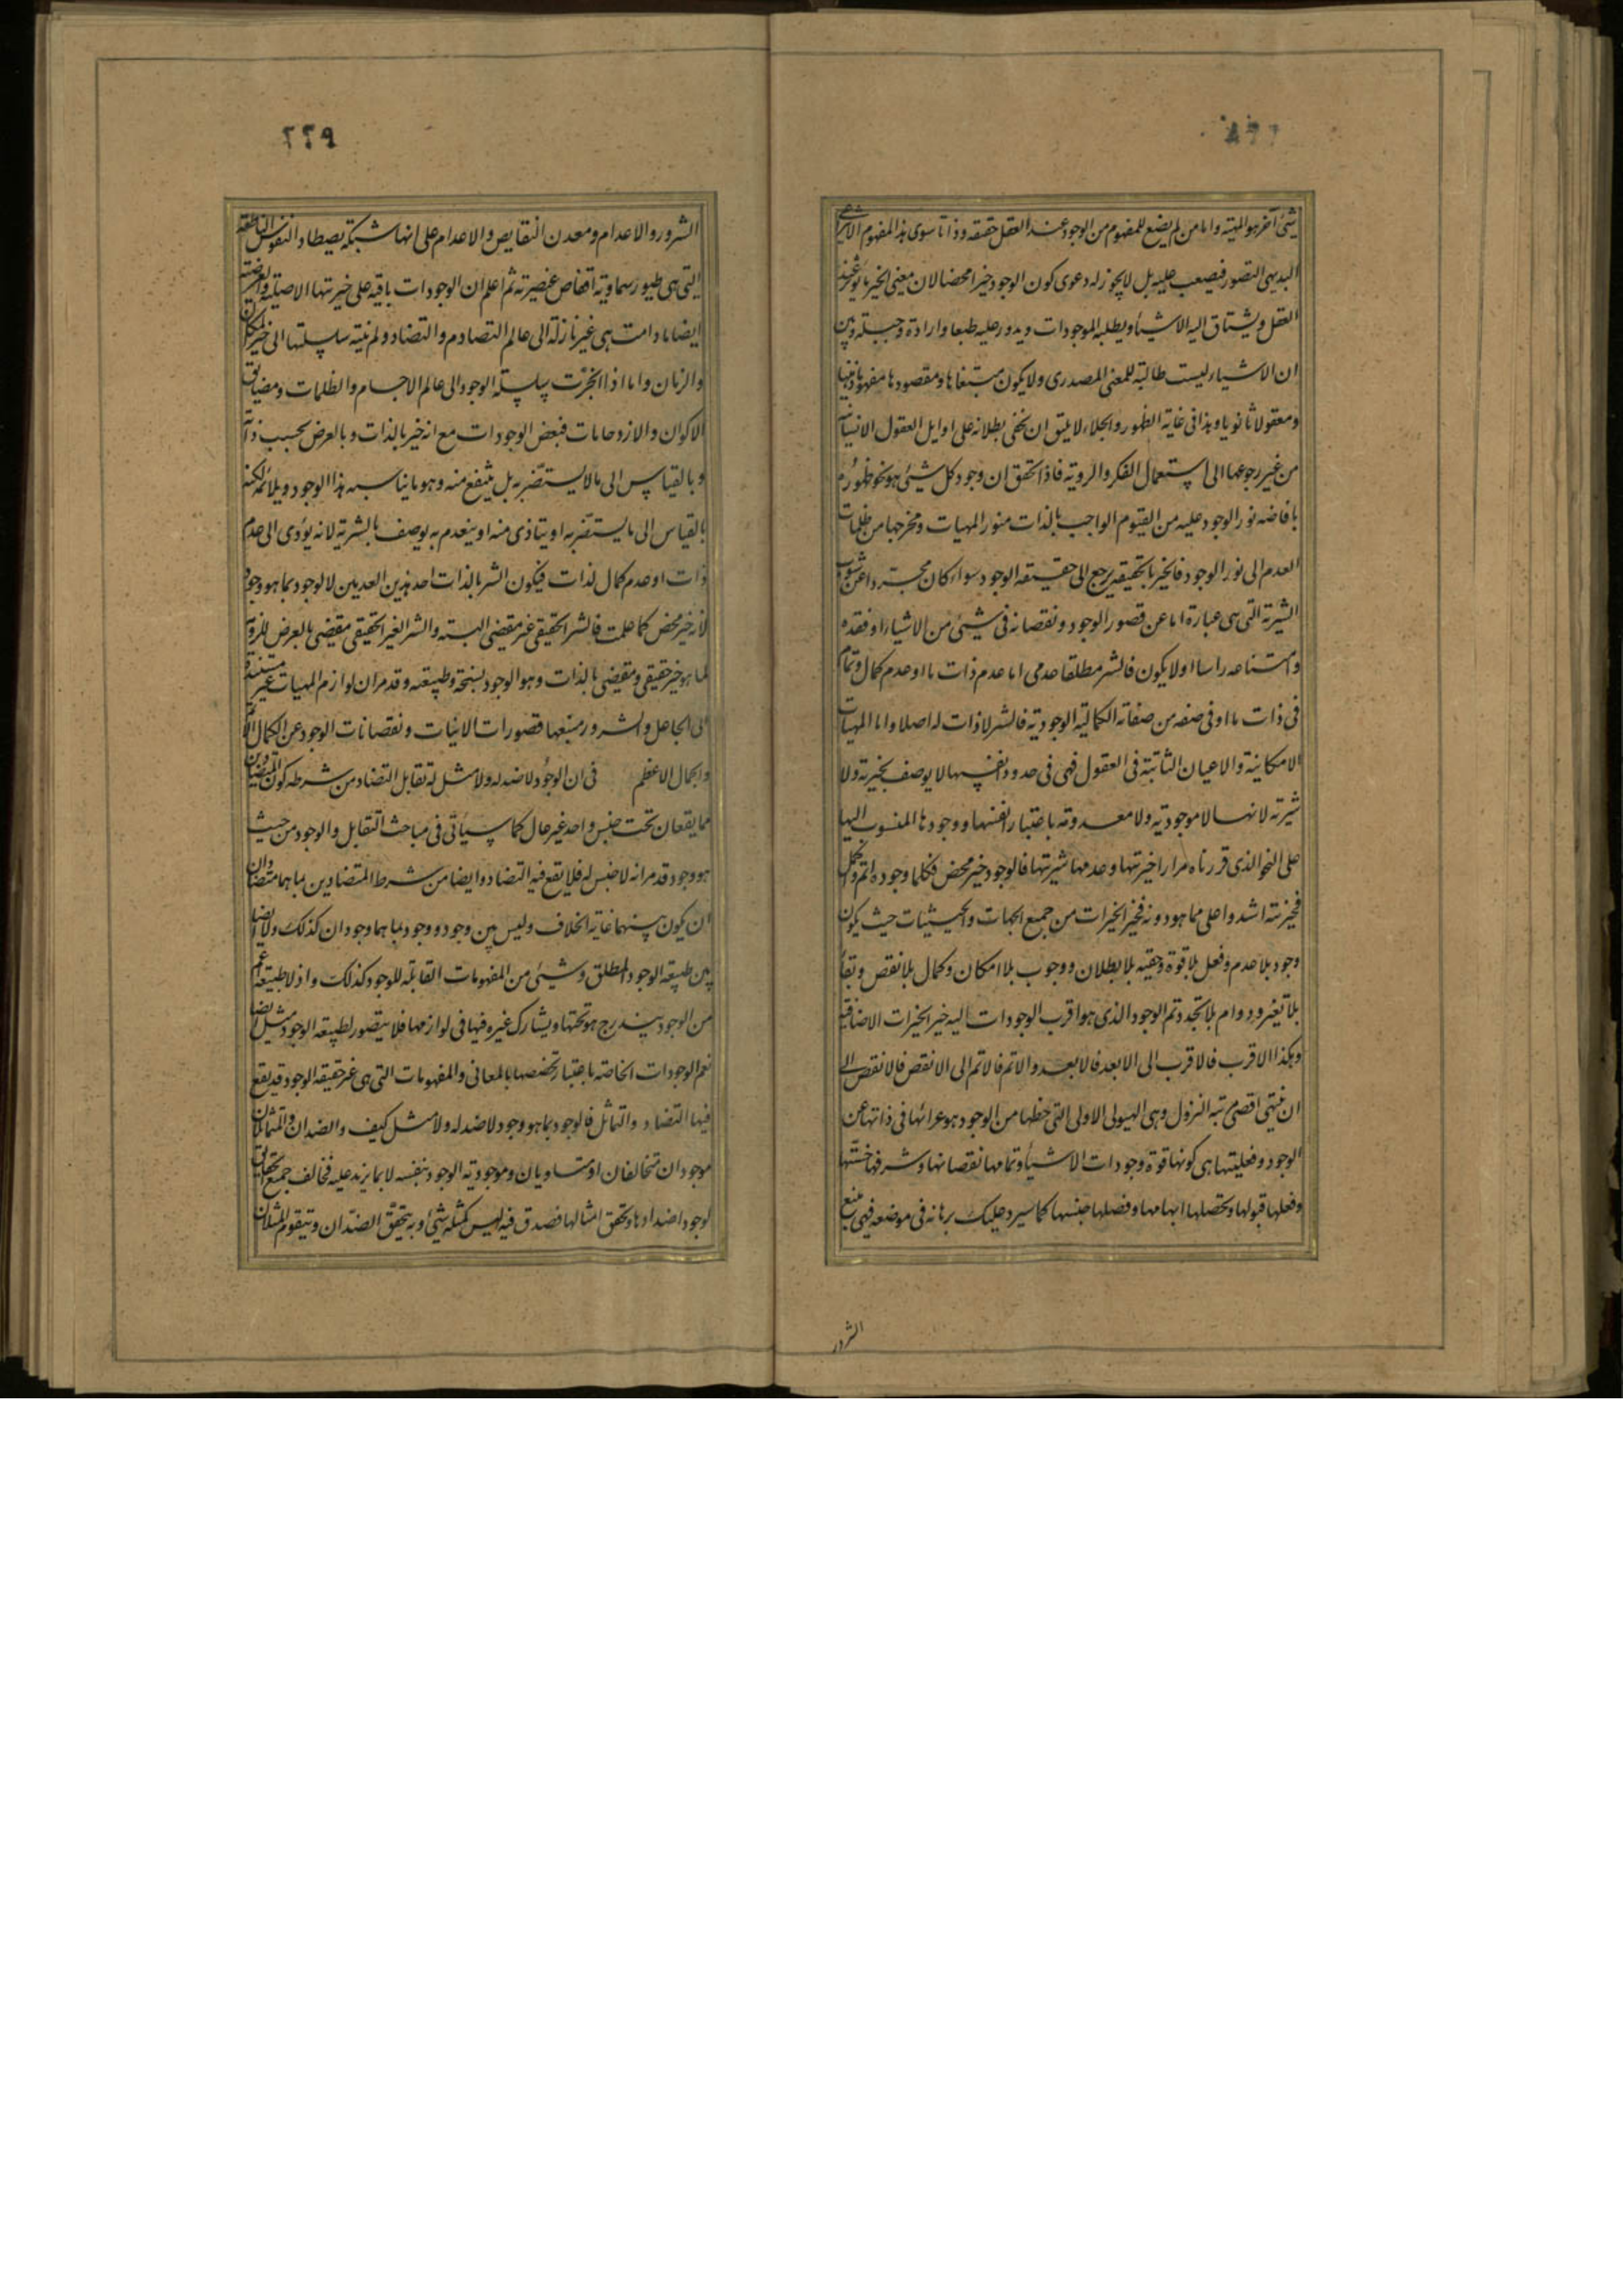 شیئ آخر هو المهیة واما من لم یضع للمفهوم من الوجود عند العقل حقیقة وذاتا سوی هذا المفهوم الانتزاعی
البدیهی التصور فیصعب علیه بل لا یجوز له دعوی کون الوجود خیرا محضا لان معنی الخیر ما یؤثر عند
العقل ویشتاق الیه الاشیاء ویطلبه الموجودات ویدور علیه طبعا وارادة وجبلة وبین
ان الاشیاء لیست طالبة للمعنی المصدری ولا یکون مبتغاها ومقصودها مفهوما ذهنیا
ومعقولا ثانویا وهذا فی غایة الظهور والجلاء لا یلیق ان یخفی بطلانه علی اوایل العقول الانسانیة
من غیر رجوعها الی استعمال الفکر والرویة فاذا تحقق ان وجود کل شیئ هو نحو ظهوره
بافاضه نور الوجود علیه من القیوم الواجب بالذات منور المهیات ومخرجها من ظلمات
العدم الی نور الوجود فالخیر بالحقیقه یرجع الی حقیقه الوجود سواء کان مجردا عن شوب
الشریة التی هی عبارة اما عن قصور الوجود ونقصانه فی شیئ من الاشیاء او فقده
وامتناعه راسا او لا یکون فالشر مطلقا عدمی اما عدم ذات ما او عدم کمال وتمام
فی ذات ما او فی صفه من صفاته الکمالیة الوجودیة فالشر لا ذات له اصلا واما المهیات
الامکانیة والاعیان الثابتة فی العقول فهی فی حدود انفسها لا یوصف بخیریة ولا
شریة لانها لا موجودیه ولا معدومه باعتبار انفسها ووجودها المنسوب الیها
علی النحو الذی قررناه مرارا خیریتها وعدمها شریتها فالوجود خیر محض فکلما وجوده اتم واکمل
فخیریته اشد واعلی مما هو دونه فخیر الخیرات من جمیع الجهات والحیثیات حیث یکون
وجود بلا عدم وفعل بلا قوة وحقیه بلا بطلان ووجوب بلا امکان وکمال بلا نقص وبقاء
بلا تغیر ودوام بلا تجدد ثم الوجود الذی هو اقرب الوجودات الیه خیر الخیرات الاضافیة
وهکذا الاقرب فالاقرب الی الابعد فالابعد والاتم فالاتم الی الانقص فالانقص الی
ان ینتهی اقصی مرتبه النزول وهی الهیولی الاولی التی حظها من الوجود هو عرائها فی ذاتها عن
الوجود وفعلیتها هی کونها قوة وجودات الاشیاء وتمامها نقصانها وشرفها خستها
وفعلها قبولها وتحصلها ابهامها وفصلها جنسها کما سیرد علیک برهانه فی موضعه فهی منبع
الشرور
٢٢٩
الشرور والاعدام ومعدن النقایص والاعدام علی انها شبکة یصطاد النفوس الناطقه
التی هی طیور سماویة اقفاص عنصریة ثم اعلم ان الوجودات باقیه علی خیریتها الاصلیة والعرضیه
ایضا ما دامت هی غیر نازلة الی عالم التصادم والتضاد ولم ینته سلسلتها الی حیز المکان
والزمان واما اذا انجرت سلسلة الوجود الی عالم الاجسام والظلمات ومضایق
الاکوان والازدحامات فبعض الوجودات مع انه خیر بالذات وبالعرض بحسب ذاته
وبالقیاس الی ما لا یستضر به بل ینتفع منه وهو ما یناسبه هذا الوجود ویلائمه لکنه
بالقیاس الی ما یستضر به او یتاذی منه او ینعدم به یوصف بالشریة لانه یؤدی الی عدم
ذات او عدم کمال لذات فیکون الشر بالذات احد هذین العدمین لا الوجود بما هو وجود
لانه خیر محض کما علمت فالشر الحقیقی غیر مقضی البته والشر الغیر الحقیقی مقضی بالعرض للزومه
لما هو خیر حقیقی ومقضی بالذات وهو الوجود بسنخه وطبیعته وقد مر ان لوازم المهیات غیر مستندة
الی الجاعل والشرور منبعها قصورات الانیات ونقصانات الوجود عن الکمال الاتم
والجمال الاعظم فی ان الوجود لا ضد له ولا مثل له تقابل التضاد من شرطه کون المتضادین
مما یقعان تحت جنس واحد غیر عال کما سیأتی فی مباحث التقابل والوجود من حیث
هو وجود قد مر انه لا جنس له فلا یقع فیه التضاد وایضا من شرط المتضادین بما هما متضادان
ان یکون بینهما غایة الخلاف ولیس بین وجود ووجود بما هما وجودان کذلک ولا ایضا
بین طبیعه الوجود المطلق وشیئ من المفهومات القابلة للوجود کذلک واذ لا طبیعه اعم
من الوجود یندرج هو تحتها ویشارک غیره فیها فی لوازمها فلا یتصور لطبیعه الوجود مثل ایضا
نعم الوجودات الخاصة باعتبار تخصصها بالمعانی والمفهومات التی هی غیر حقیقه الوجود قد یقع
فیها التضاد والتماثل فالوجود بما هو وجود لا ضد له ولا مثل کیف والضدان والمتماثلان
موجودان متخالفان او متساویان وموجودیة الوجود بنفسه لا بما یزید علیه فخالف جمیع الحقایق
لوجود اضدادها وتحقق امثالها فصدق فیه لیس کمثله شیئ وبه یتحقق الضدان ویتقوم المثلان